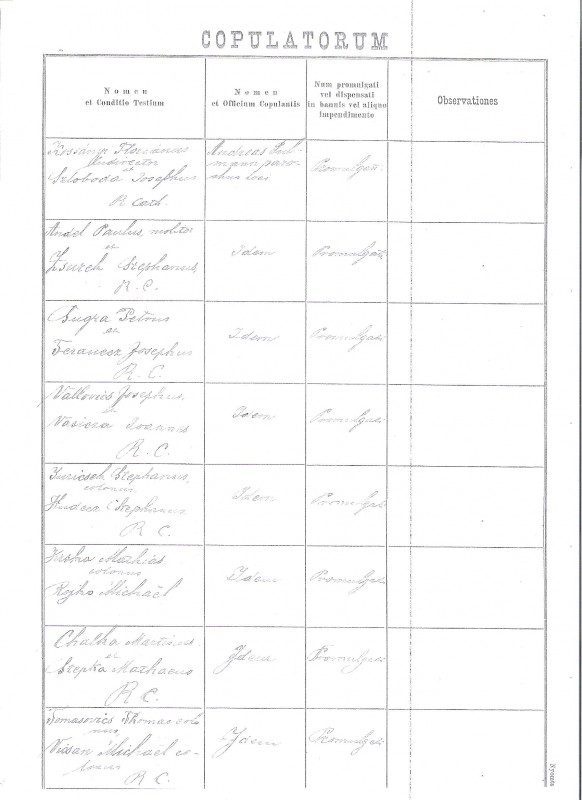 COPULATORUM
Nomen
et Conditio Testium
Nomen
et Officium Copulantis
Num promulgati
vel dispensati
in bannis vel aliquo
impendimento
Observationes
Florianus
et
Szloboda Josephus
R Cath.
Andreas
mann paro-
chus loci
Promulgati
Andel Paulus, molitor
et
Stephanus,
R. C.
Idem
Promulgati
Petrus
et
Ferancsz Josephus
R. C.
Idem
Promulgati
Vallovics Josephus,
et
Vasicza Joannes
R. C.
Idem
Promulgati
Juricsek Stephanus,
colonus
Stephanus
R C.
Idem
Promulgati
Mathias
colonus
Rejko Michaël
Idem
Promulgati
Chalka Martinus
et
Szepka Mathaeus
R C.
Idem
Promulgati
Tomasovics Thomas colo
nus,
Michael co-
lonus
R C.
Idem
Promulgati